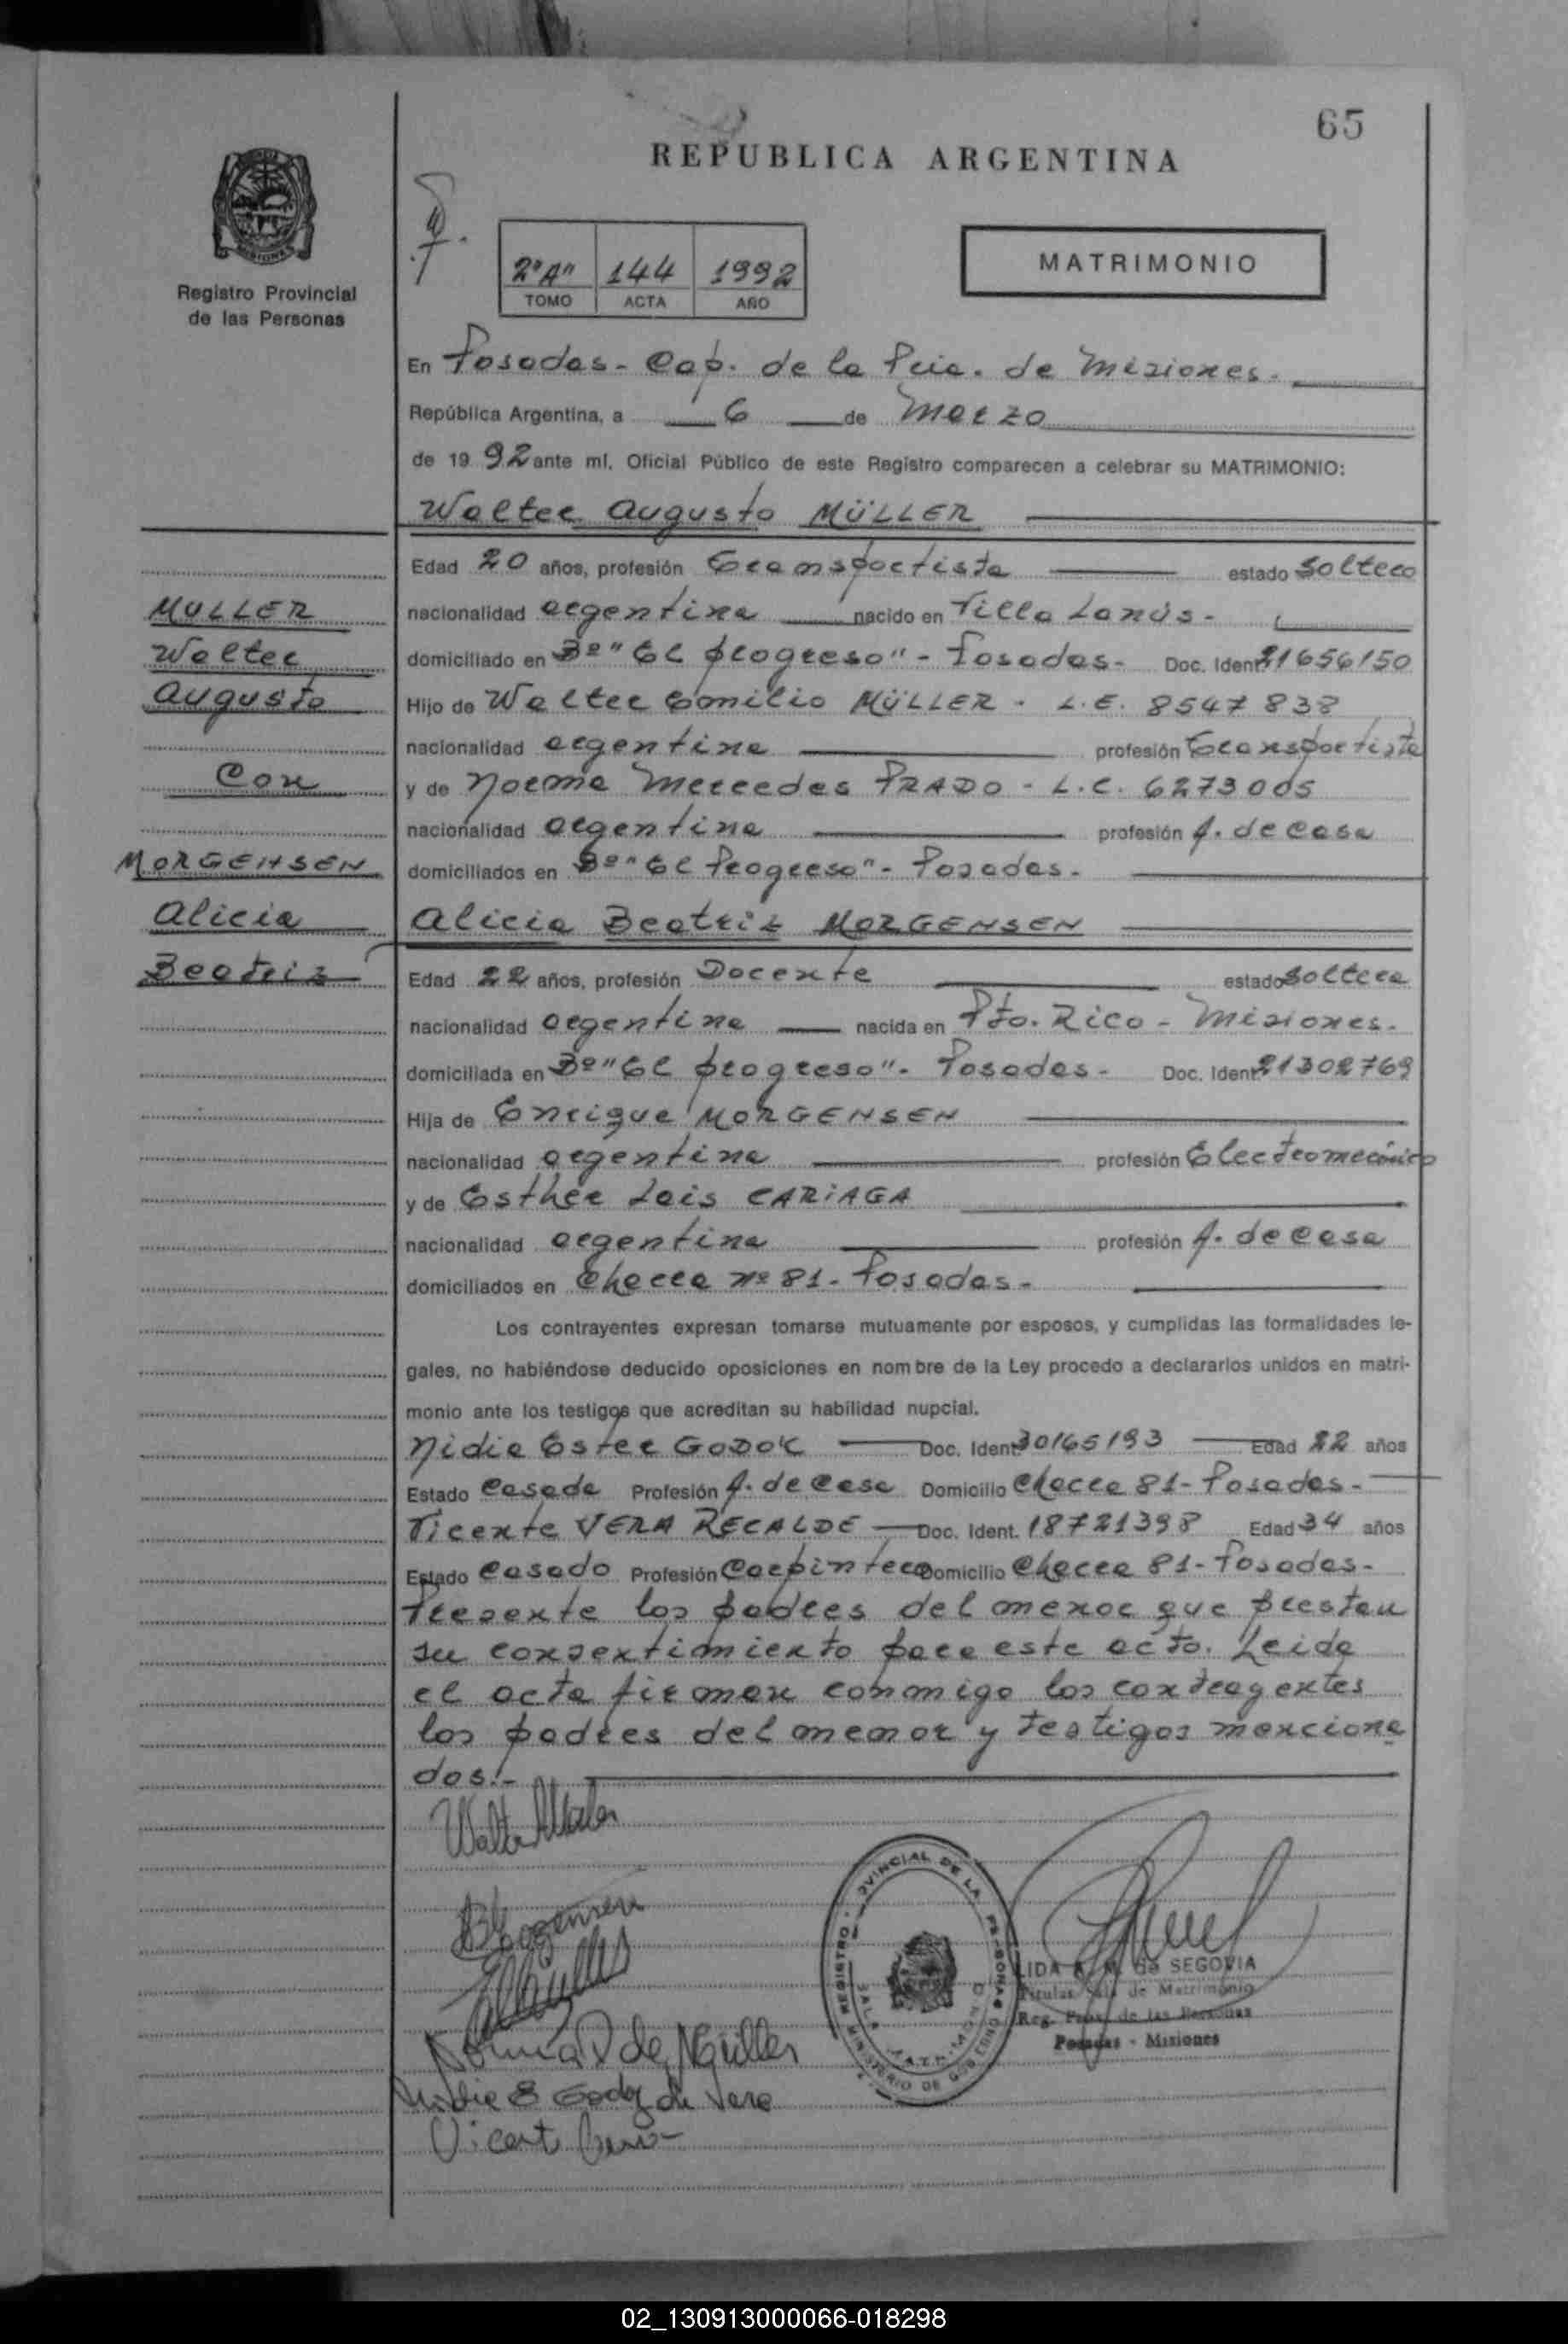 65
REPUBLICA ARGENTINA
Registro Provincial
de las Personas
2º"A" 144 1992
TOMO ACTA AÑO
MATRIMONIO
En Posadas - Cap. de la Pcia. de Misiones.
República Argentina, a 6 de Marzo
de 1992 ante mí, Oficial Público de este Registro comparecen a celebrar su MATRIMONIO:
Walter Augusto MÜLLER
Edad 20 años, profesión Transportista estado Soltero
MULLER
nacionalidad argentina nacido en Villa Lanús -
Walter
domiciliado en Bº "El progreso" - Posadas - Doc. Ident. 21656150
Augusto
Hijo de Walter Emilio MÜLLER - L.E. 8547838
nacionalidad argentina profesión Transportista
Con
y de Norma Mercedes PRADO - L.C. 6273005
nacionalidad argentina profesión A. de casa
MORGENSEN
domiciliados en Bº "El Progreso" - Posadas -
Alicia
Alicia Beatriz MORGENSEN
Beatriz
Edad 22 años, profesión Docente estado Soltera
nacionalidad argentina nacida en Pto. Rico - Misiones.
domiciliada en Bº "El progreso" - Posadas - Doc. Ident. 21302769
Hija de Enrique MORGENSEN
nacionalidad argentina profesión Electromecánico
y de Esther Lais CARIAGA
nacionalidad argentina profesión A. de casa
domiciliados en Chacra nº 81 - Posadas -
Los contrayentes expresan tomarse mutuamente por esposos, y cumplidas las formalidades le-
gales, no habiéndose deducido oposiciones en nombre de la Ley procedo a declararlos unidos en matri-
monio ante los testigos que acreditan su habilidad nupcial.
Nidia Ester GODOY Doc. Ident. 30165193 Edad 22 años
Estado Casada Profesión A. de casa Domicilio Chacra 81 - Posadas -
Vicente VERA RECALDE Doc. Ident. 18721398 Edad 34 años
Estado Casado Profesión Carpintero Domicilio Chacra 81 - Posadas -
Presente los padres del menor que prestan
su consentimiento para este acto. Leida
el acta firman conmigo los contrayentes
los padres del menor y testigos menciona
dos.-
Walter Muller
Norma P de Müller
Nidia E Godoy de Vera
Vicente Vera
REGISTRO PROVINCIAL DE LAS PERSONAS
MINISTERIO DE GOBIERNO
SALA MATRIMONIO
LIDA de SEGOVIA
Titular Sala de Matrimonio
Reg. Prov. de las Personas
Posadas - Misiones
02_130913000066-018298